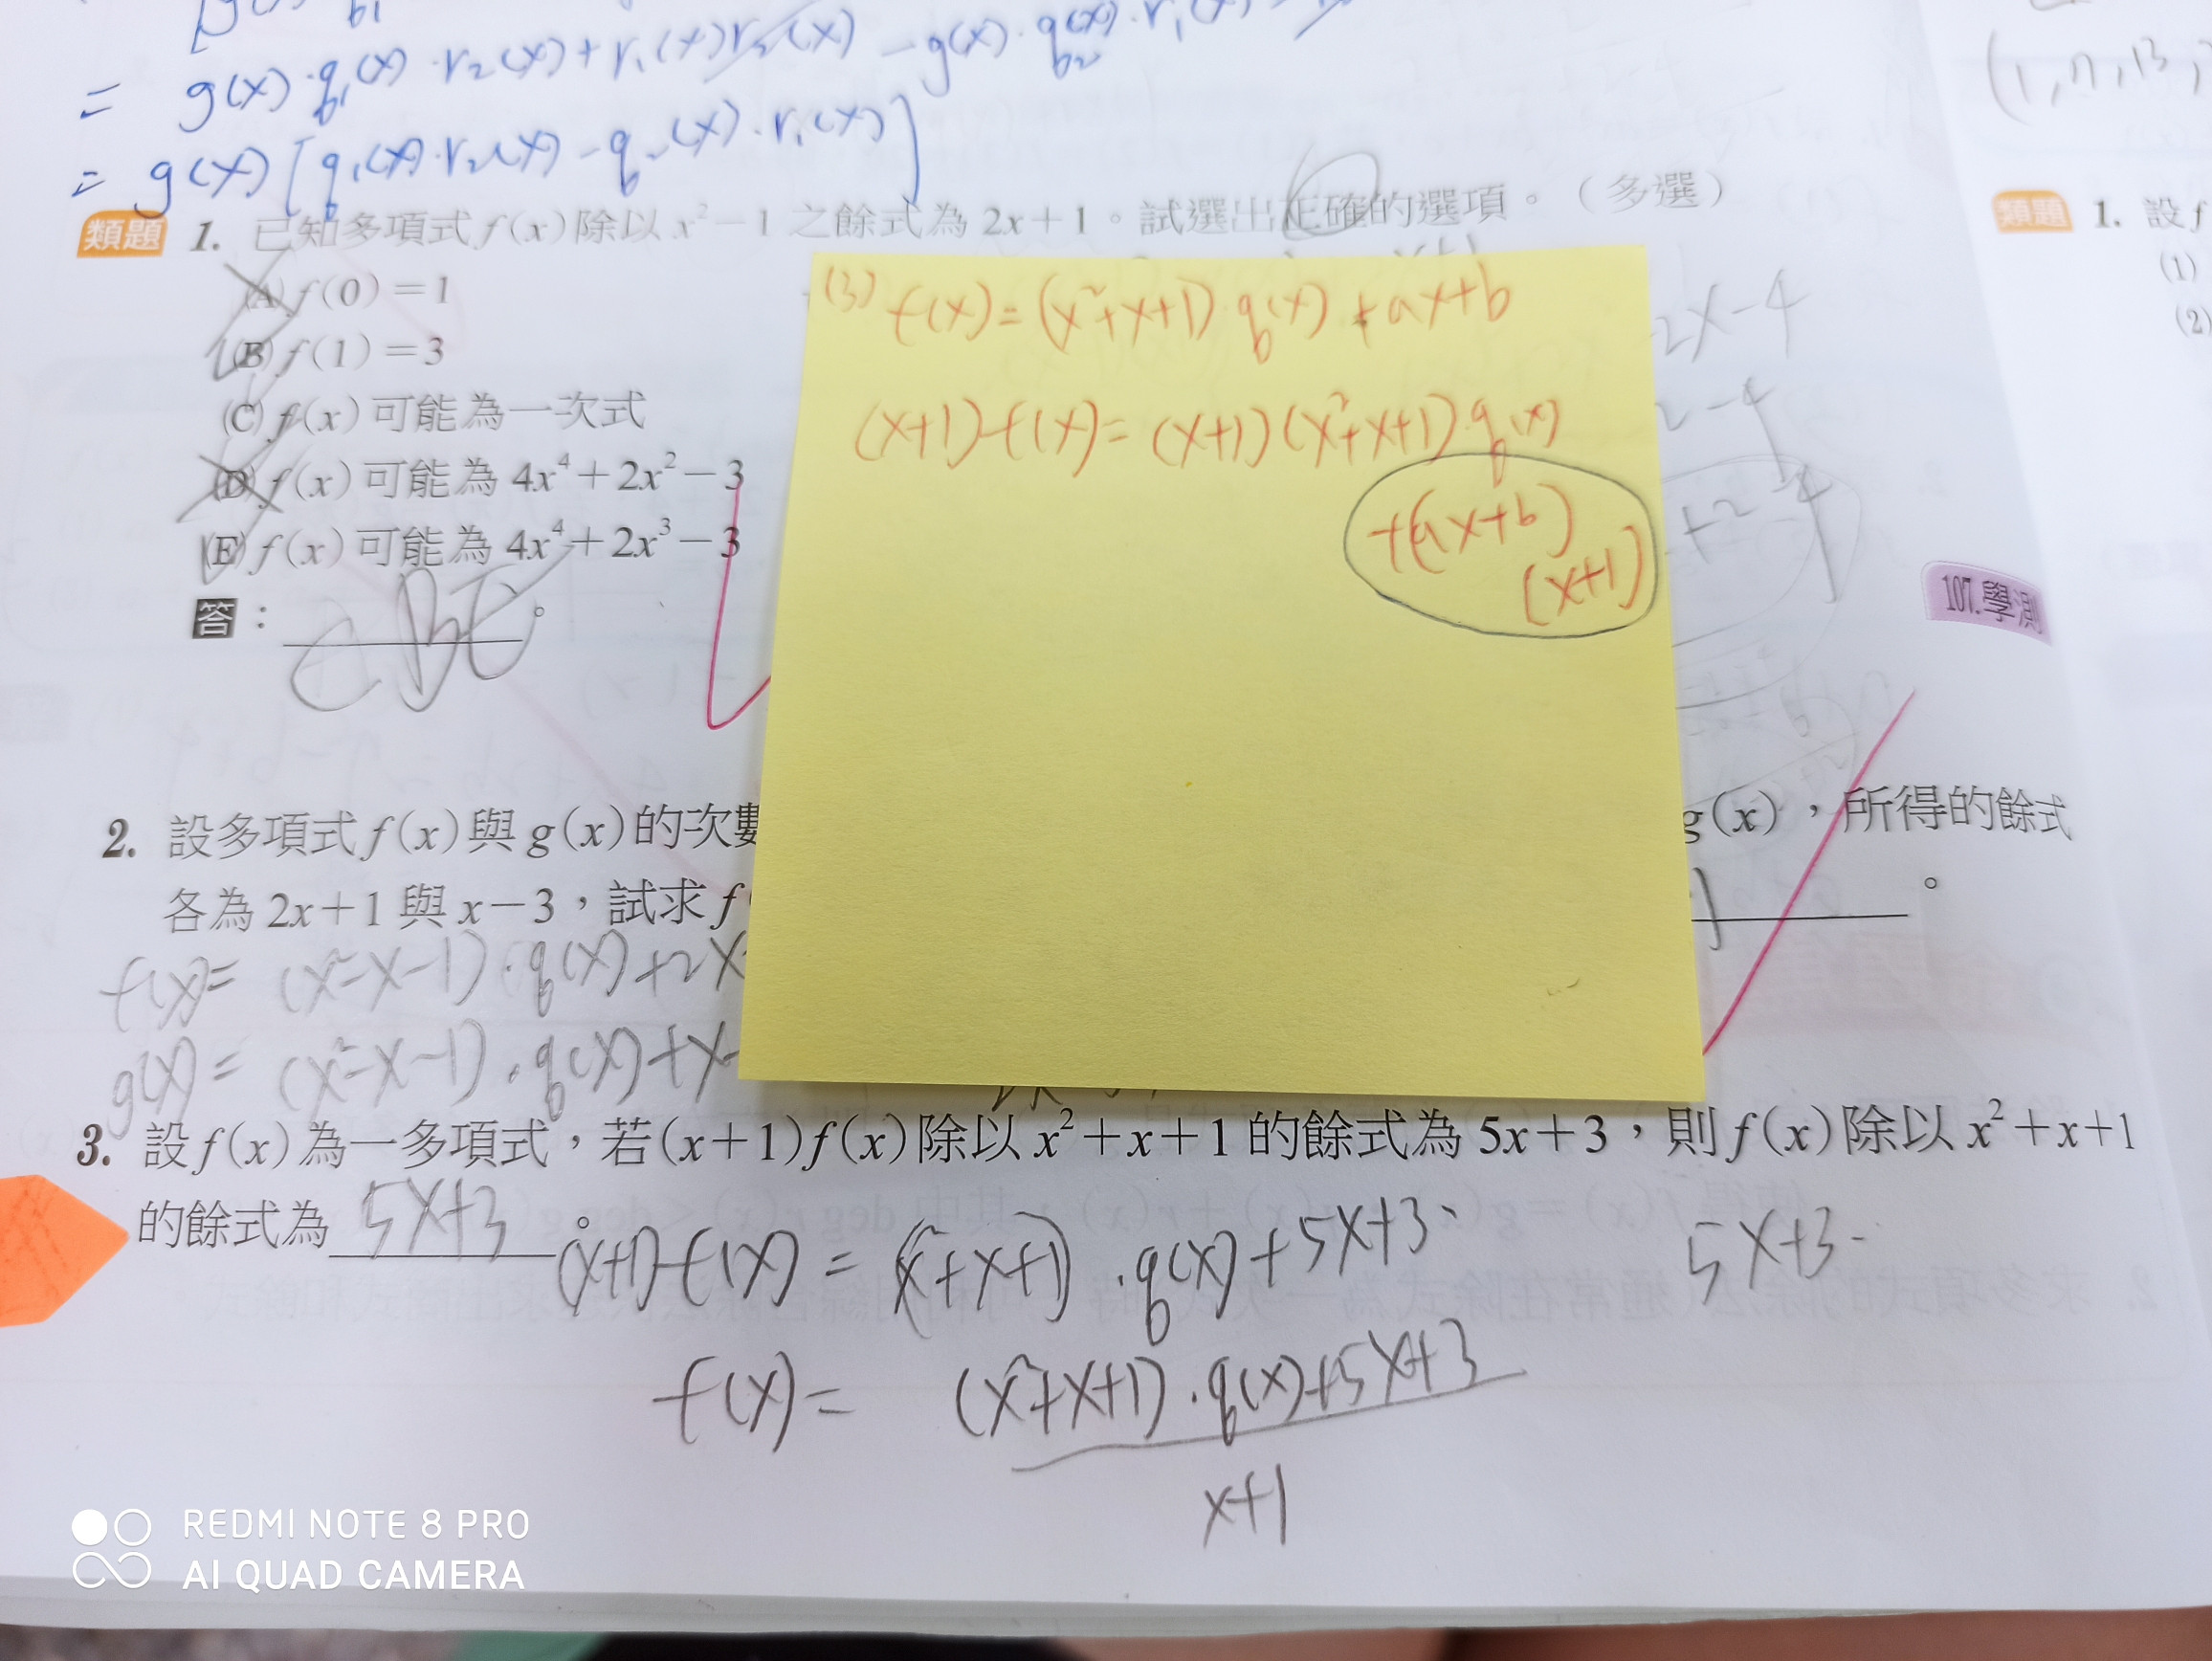 = g(x)·q₁(x)·r₂(x)+r₁(x)r₂(x) - g(x)·q₂(x)·r₁(x)
= g(x)[q₁(x)·r₂(x) - q₂(x)·r₁(x)]
(1,17,13,
類題 1. 已知多項式 f(x) 除以 x²-1 之餘式為 2x+1。試選出正確的選項。(多選)
(A) f(0)=1
(B) f(1)=3
(C) f(x) 可能為一次式
(D) f(x) 可能為 4x⁴+2x²-3
(E) f(x) 可能為 4x⁴+2x³-3
答: CBE。
(3) f(x)=(x²+x+1)·q(x)+ax+b
(x+1)f(x)=(x+1)(x²+x+1)·q(x)
+(ax+b)
(x+1)
-2x-4
107.學測
類題 1. 設 f
(1)
(2)
2. 設多項式 f(x) 與 g(x) 的次數 g(x),所得的餘式
各為 2x+1 與 x-3,試求 f 。
f(x)= (x²-x-1)·q(x)+2x
g(x)= (x²-x-1)·q(x)+x-
3. 設 f(x) 為一多項式,若 (x+1)f(x) 除以 x²+x+1 的餘式為 5x+3,則 f(x) 除以 x²+x+1
的餘式為 5x+3 。
(x+1)f(x) = (x²+x+1)·q(x)+5x+3
5x+3
f(x)= (x²+x+1)·q(x)+5x+3
x+1
REDMI NOTE 8 PRO
AI QUAD CAMERA